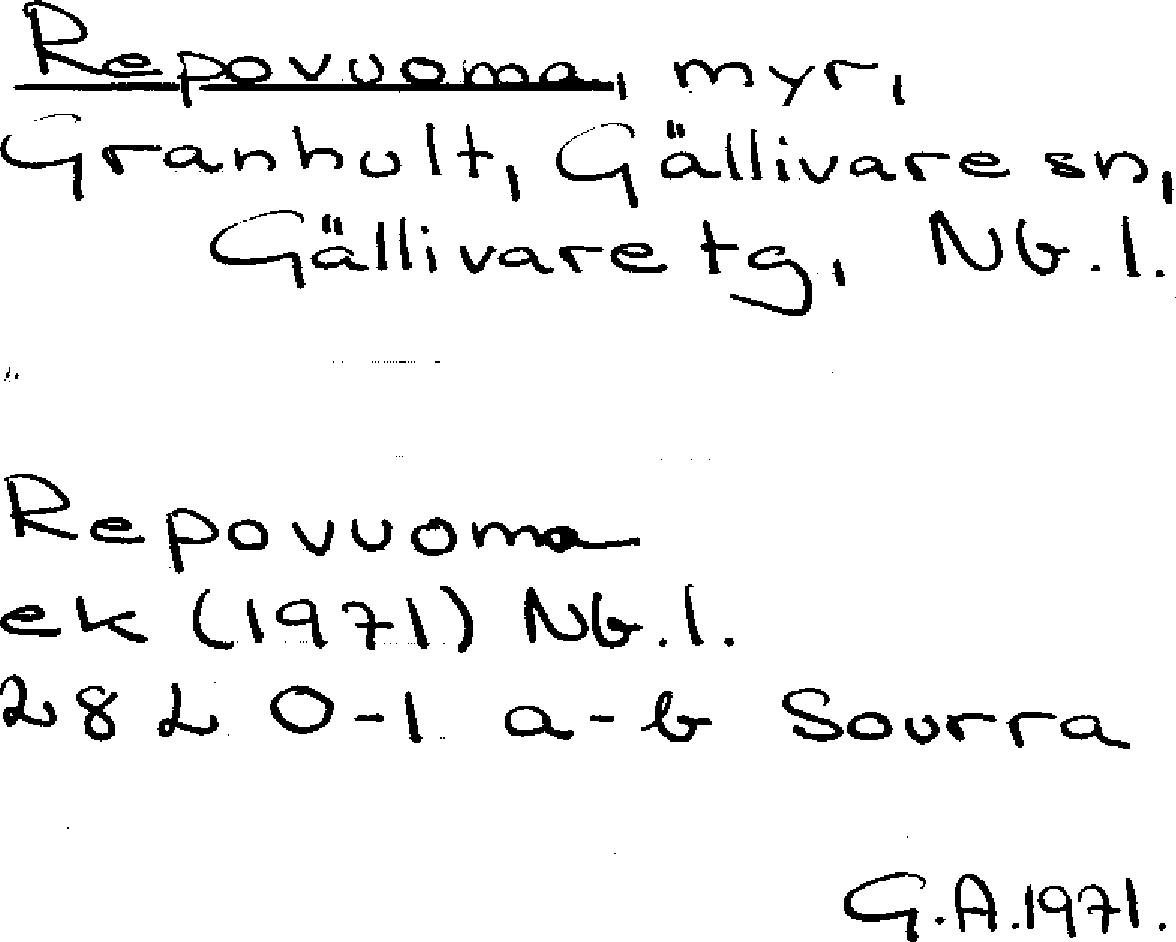 Repovuoma, myr,
Granhult, Gällivare sn,
Gällivare tg, Nb. l.
Repovuoma
ek (1971) Nb. l.
28 L 0-1 a-b Sourra
G.A. 1971.